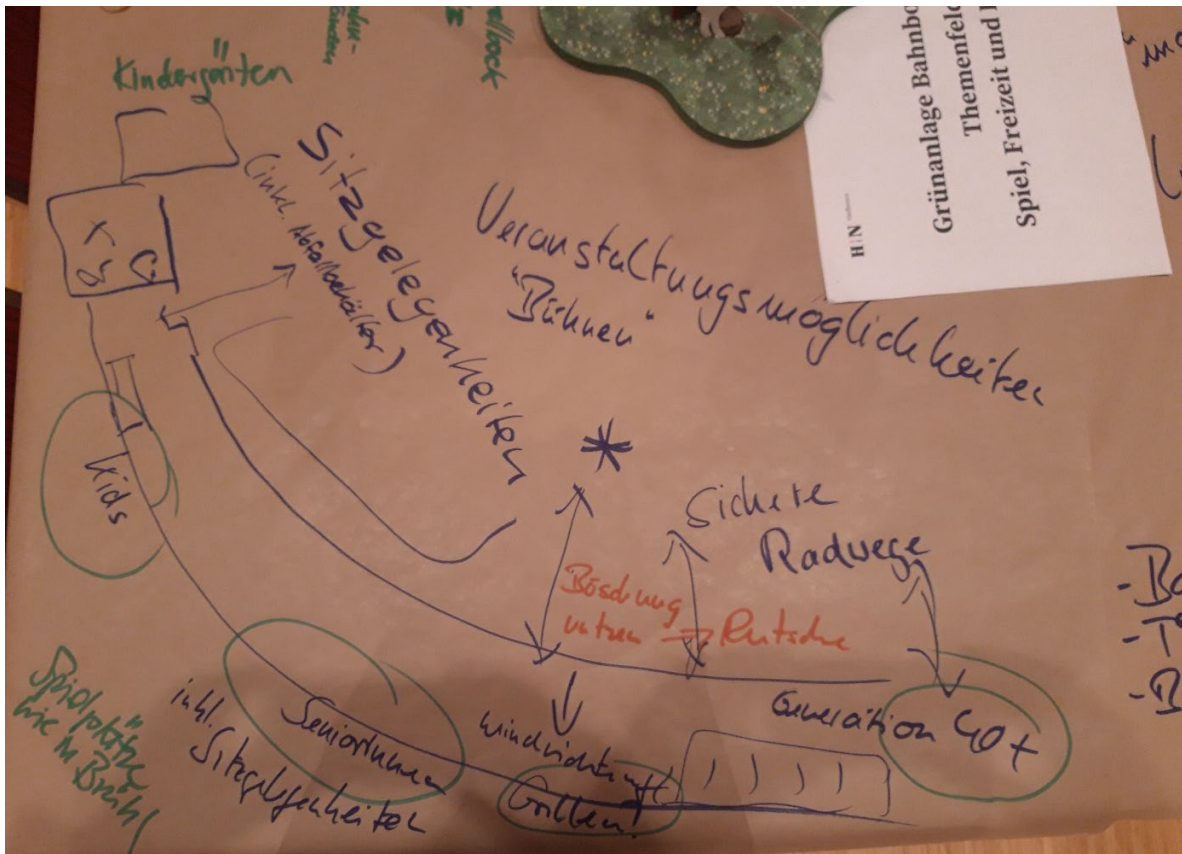 Kindergärten
Sitzgelegenheiten
(inkl. Abfallbehälter)
Veranstaltungsmöglichkeiten
"Bühnen"
H:N
Grünanlage Bahnbo
Themenfeld
Spiel, Freizeit und
xy
Kids
Sichere
Radwege
Böschung
nutzen → Rutsche
Generation 40+
Seniorinnen
inkl.
Sitzgelegenheiten
Grillen!
Spielplätze
wie in Brühl
- B
- T
- B